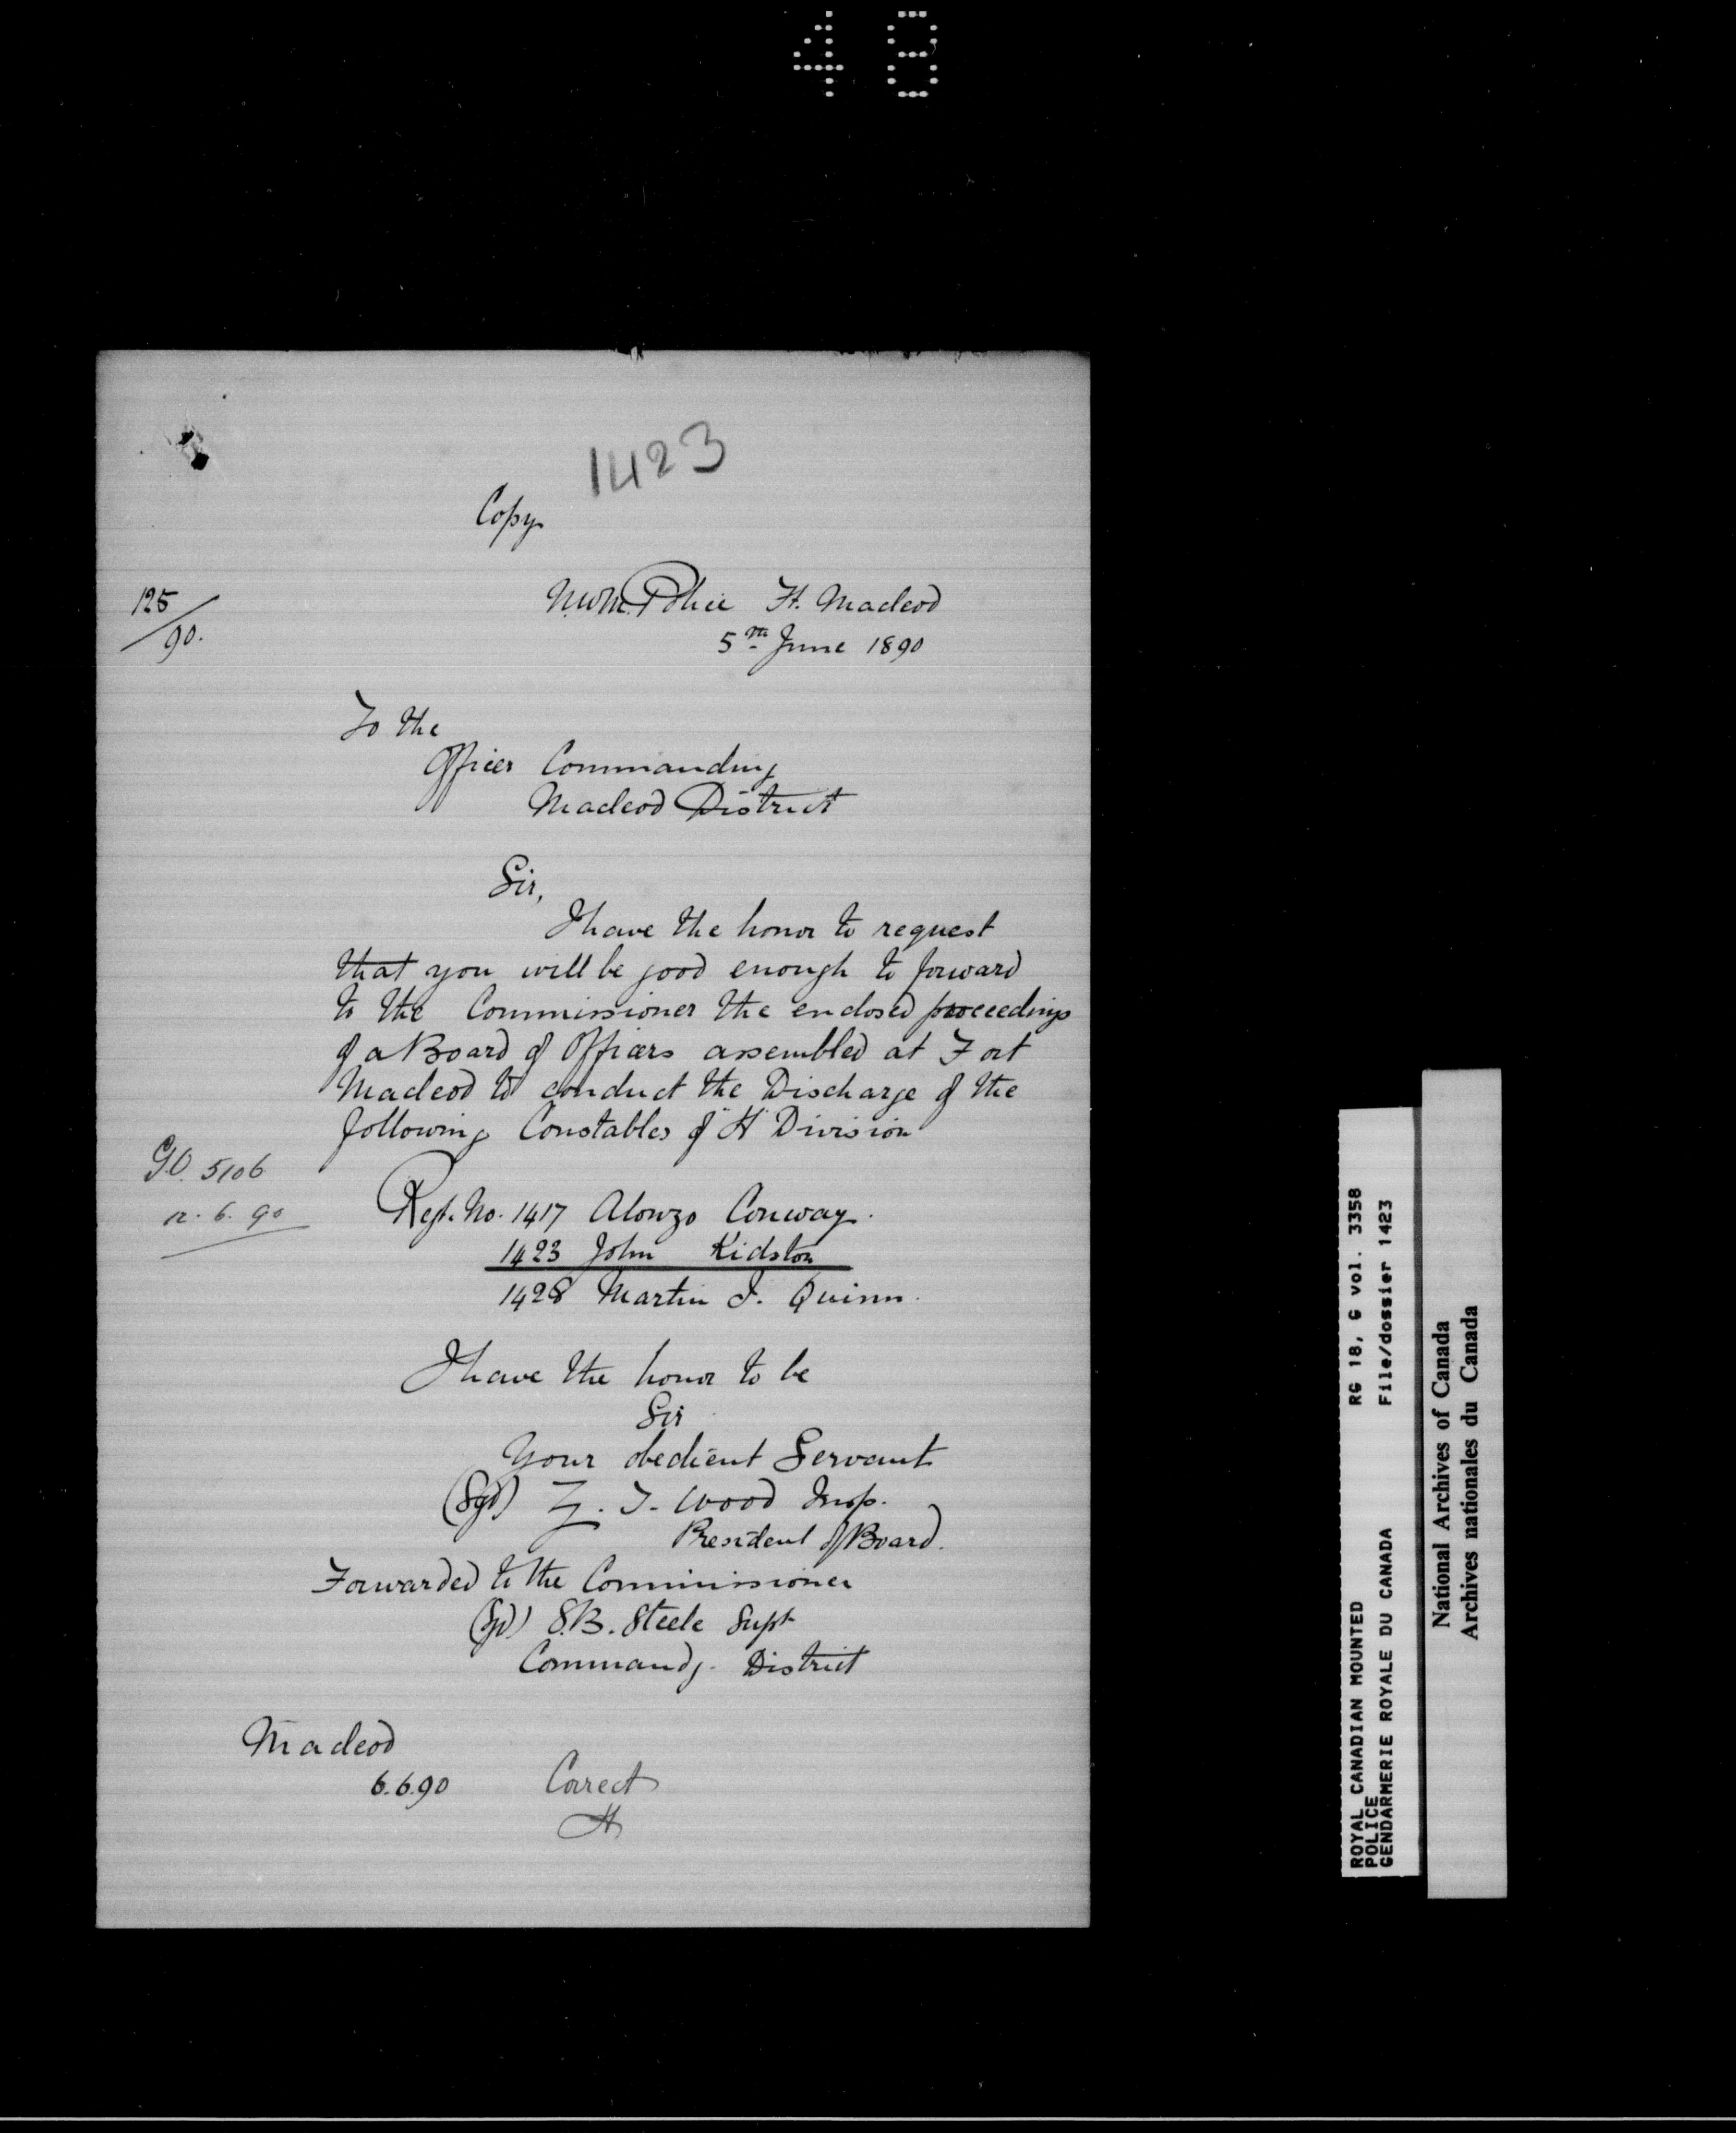 48
1423
Copy
125/90.
N.W.M. Police Ft. Macleod
5th June 1890
To the
Officer Commanding
Macleod District
Sir,
I have the honor to request
that you will be good enough to forward
to the Commissioner the enclosed proceedings
of a Board of Officers assembled at Fort
Macleod to conduct the Discharge of the
following Constables of "H" Division
G.O. 5106
12.6.90
Regt. No. 1417 Alonzo Conway.
1423 John Kidston
1428 Martin J. Quinn.
I have the honor to be
Sir
Your obedient Servant
(Sgd) Z. T. Wood Insp.
President of Board.
Forwarded to the Commissioner
(Sgd) S.B. Steele Supt
Commandg. District
Macleod
6.6.90
Correct
H
ROYAL CANADIAN MOUNTED RG 18, G vol. 3358
POLICE
GENDARMERIE ROYALE DU CANADA File/dossier 1423
National Archives of Canada
Archives nationales du Canada